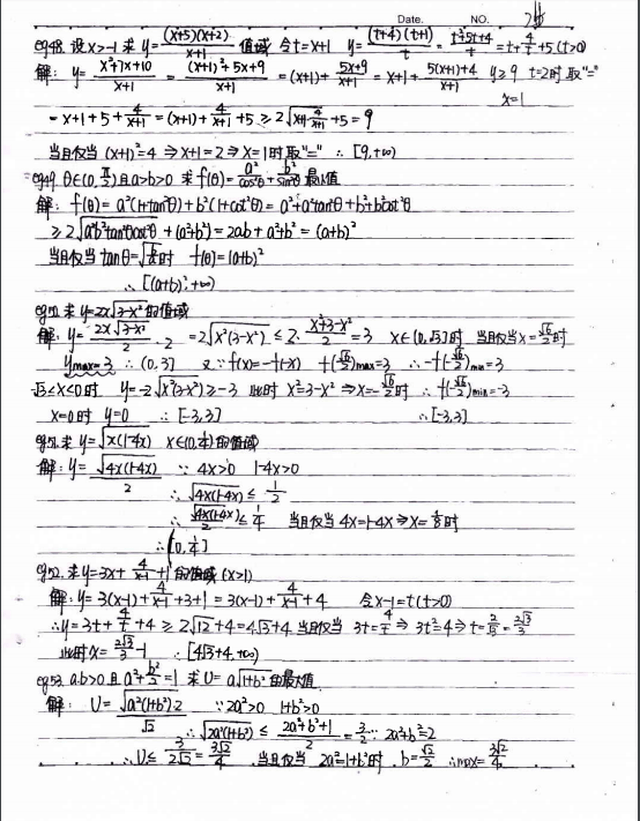 Date. NO.
eg48. 设 x>-1 求 y=(x+5)(x+2)/(x+1) 值域 令t=x+1 y=(t+4)(t+1)/t=(t²+5t+4)/t=t+4/t+5(t>0)
解: y=(x²+7x+10)/(x+1)=((x+1)²+5x+9)/(x+1)=(x+1)+(5x+9)/(x+1)=x+1+(5(x+1)+4)/(x+1) y≥9 t=2时 取"="
x=1
=x+1+5+4/(x+1)=(x+1)+4/(x+1)+5≥2√(x+1·4/(x+1))+5=9
当且仅当 (x+1)²=4⇒x+1=2⇒x=1时取"=" ∴[9,+∞)
eg49. θ∈(0,π/2)且a>b>0 求f(θ)=a²/cos²θ+b²/sin²θ最小值
解: f(θ)=a²(1+tan²θ)+b²(1+cot²θ)=a²+a²tan²θ+b²+b²cot²θ
≥2√(a²b²tan²θcot²θ)+(a²+b²)=2ab+a²+b²=(a+b)²
当且仅当tanθ=√(b/a)时 f(θ)=(a+b)²
∴[(a+b)²,+∞)
求y=2x√(3-x²)的值域
解: y=2x√(3-x²)/2·2=2√(x²(3-x²))≤2·(x²+3-x²)/2=3 x∈(0,√3]时 当且仅当x=√6/2时
ymax=3 ∴(0,3] 又∵f(x)=-f(-x) f(√6/2)max=3 ∴-f(-√6/2)min=3
-√3≤x<0时 y=-2√(x²(3-x²))≥-3 此时 x²=3-x²⇒x=-√6/2时 ∴f(-√6/2)min=-3
x=0时 y=0 ∴[-3,3] ∴[-3,3]
eg51. 求y=√(x(1-4x)) x∈(0,1/4)的值域
解: y=√(4x(1-4x))/2 ∵4x>0 1-4x>0
∴√(4x(1-4x))≤1/2
∴√(4x(1-4x))/2≤1/4 当且仅当4x=1-4x⇒x=1/8时
∴(0,1/4]
eg52. 求y=3x+4/(x-1)+1的值域(x>1)
解: y=3(x-1)+4/(x-1)+3+1=3(x-1)+4/(x-1)+4 令x-1=t(t>0)
∴y=3t+4/t+4≥2√12+4=4√3+4 当且仅当 3t=4/t⇒3t²=4⇒t=2/√3=2√3/3
此时x=2√3/3-1 ∴[4√3+4,+∞)
eg53. a.b>0且a²+b²/2=1 求U=a√(1+b²)的最大值
解: U=√(a²(1+b²)·2)/√2 ∵2a²>0 1+b²>0
∴√(2a²(1+b²))≤(2a²+b²+1)/2=3/2 ∵2a²+b²=2
∴U≤3/(2√2)=3√2/4 当且仅当 2a²=1+b²时 b=√2/2 ∴max=3√2/4